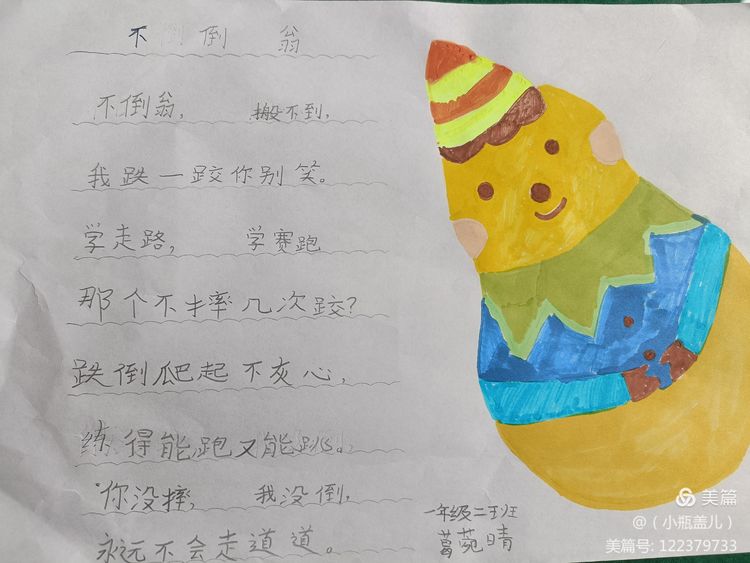 不倒翁
不倒翁， 搬不到，
我跌一跤你别笑。
学走路， 学赛跑
那个不摔几次跤？
跌倒爬起不灰心，
练得能跑又能跳。
你没摔， 我没倒，
永远不会走道道。
一年级二班
葛菀晴
美篇
@（小瓶盖儿）
美篇号: 122379733